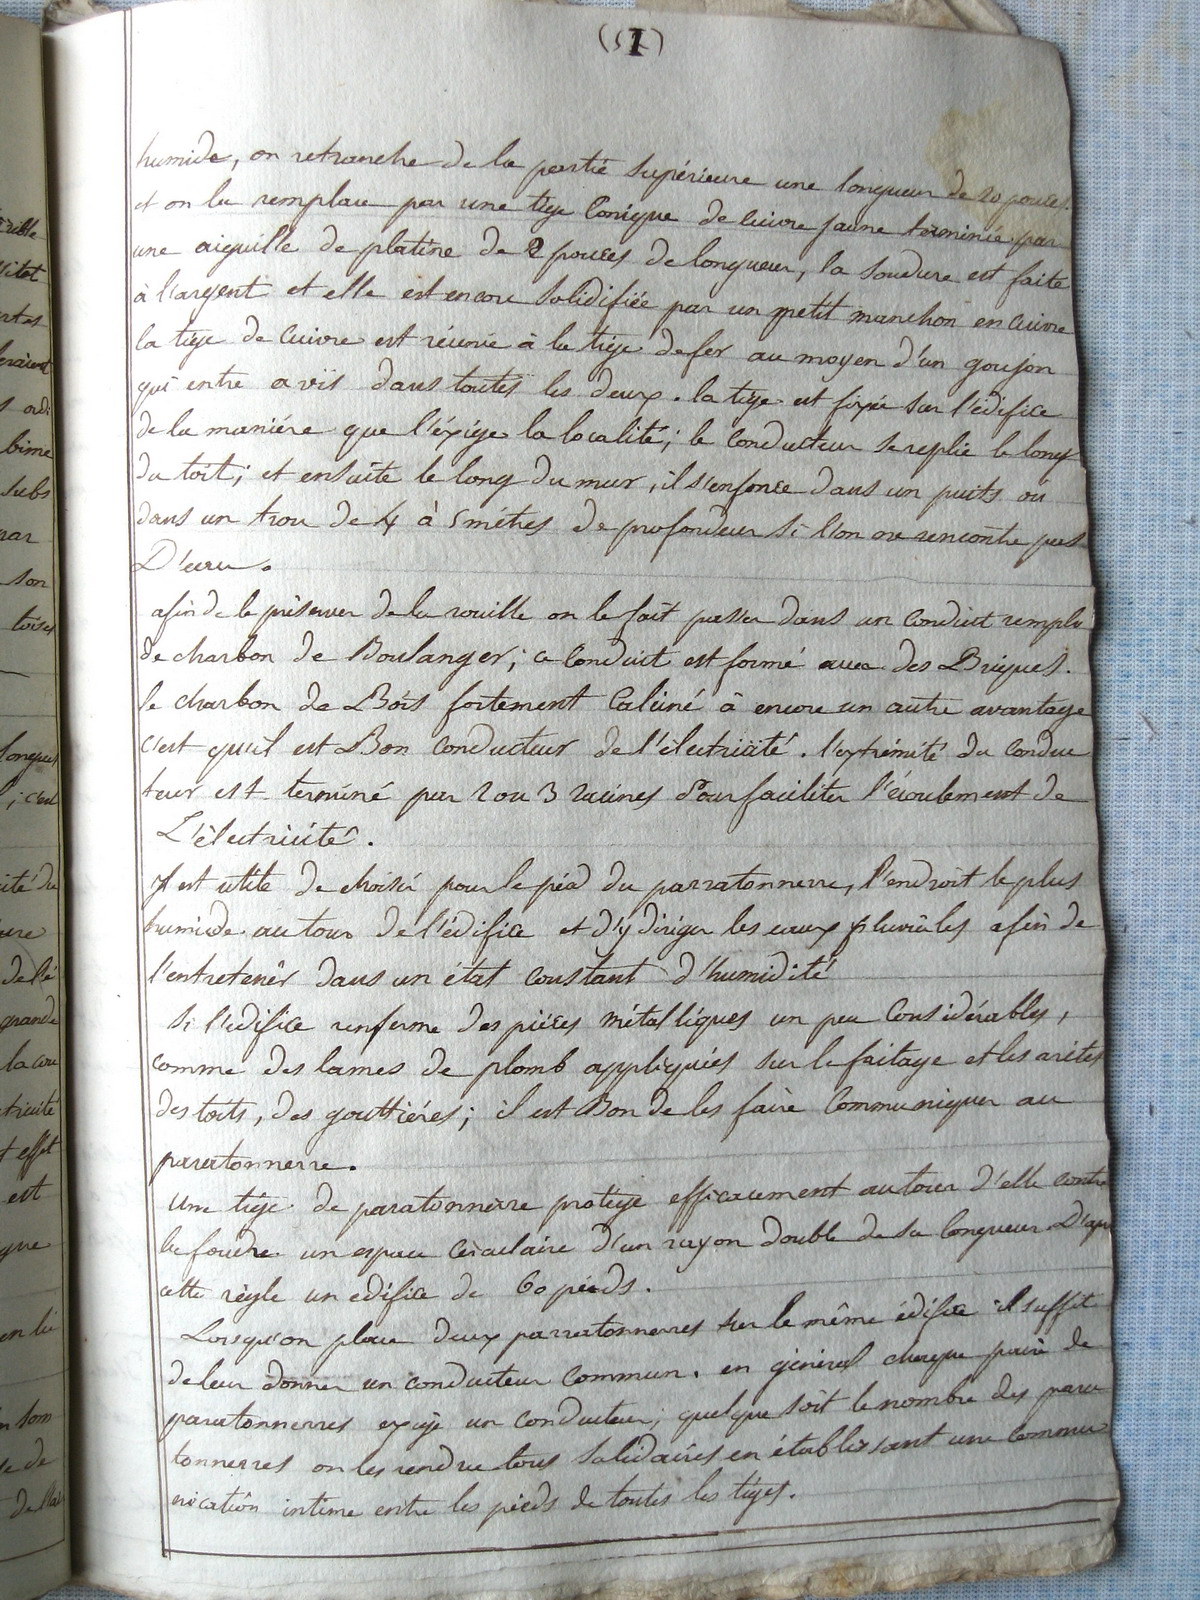 (51)
humide, on retranche de la partie supérieure une longueur de 20 pouces.
et on la remplace par une tige Conique de Cuivre jaune terminée par
une aiguille de platine de 2 pouces de longueur, la soudure est faite
à l'argent et elle est encore solidifiée par un petit manchon en cuivre
la tige de Cuivre est réunie à la tige de fer au moyen d'un goujon
qui entre a vis dans toutes les deux. la tige est fixée sur l'édifice
de la maniére que l'éxige la localité; le conducteur se replie le long
du toit; et ensuite le long du mur, il s'enfonce dans un puits où
dans un trou de 4 à 5 métres de profondeur si l'on ne rencontre pas
D'eau.
afin de le préserver de la rouille on le fait passer dans un conduit rempli
de charbon de Boulanger; ce conduit est formé avec des Briques.
le charbon de Bois fortement Calciné à encore un autre avantage
C'est qu'il est Bon conducteur de l'électricité. l'extrémité du Conduc
teur est terminé par 2 ou 3 racines Pour faciliter l'écoulement de
L'électricité.
Il est utile de choisir pour le pied du parratonnerre, l'endroit le plus
humide autour de l'édifice et d'y diriger les eaux pluviales afin de
l'entretenir dans un état constant d'humidité
Si l'édifice renferme des piéces métalliques un peu Considérables,
comme des lames de plomb appliquées sur le faitage et les arites
des toits, des gouttiéres; il est Bon de les faire Communiquer au
paratonnerre.
Une tige de paratonnerre protége efficacement autour d'elle contre
la foudre un espace Circulaire d'un rayon double de sa longueur D'apr
cette règle un edifice de 60 pieds.
Lorsqu'on place deux parratonnerres sur le même édifice il suffit
de leur donner un conducteur Commun. en général chaque paire de
paratonnerres exige un conducteur; quelque soit le nombre des para
tonnerres on les rendra tous solidaires en établissant une Commu
nication intime entre les pieds de toutes les tiges.